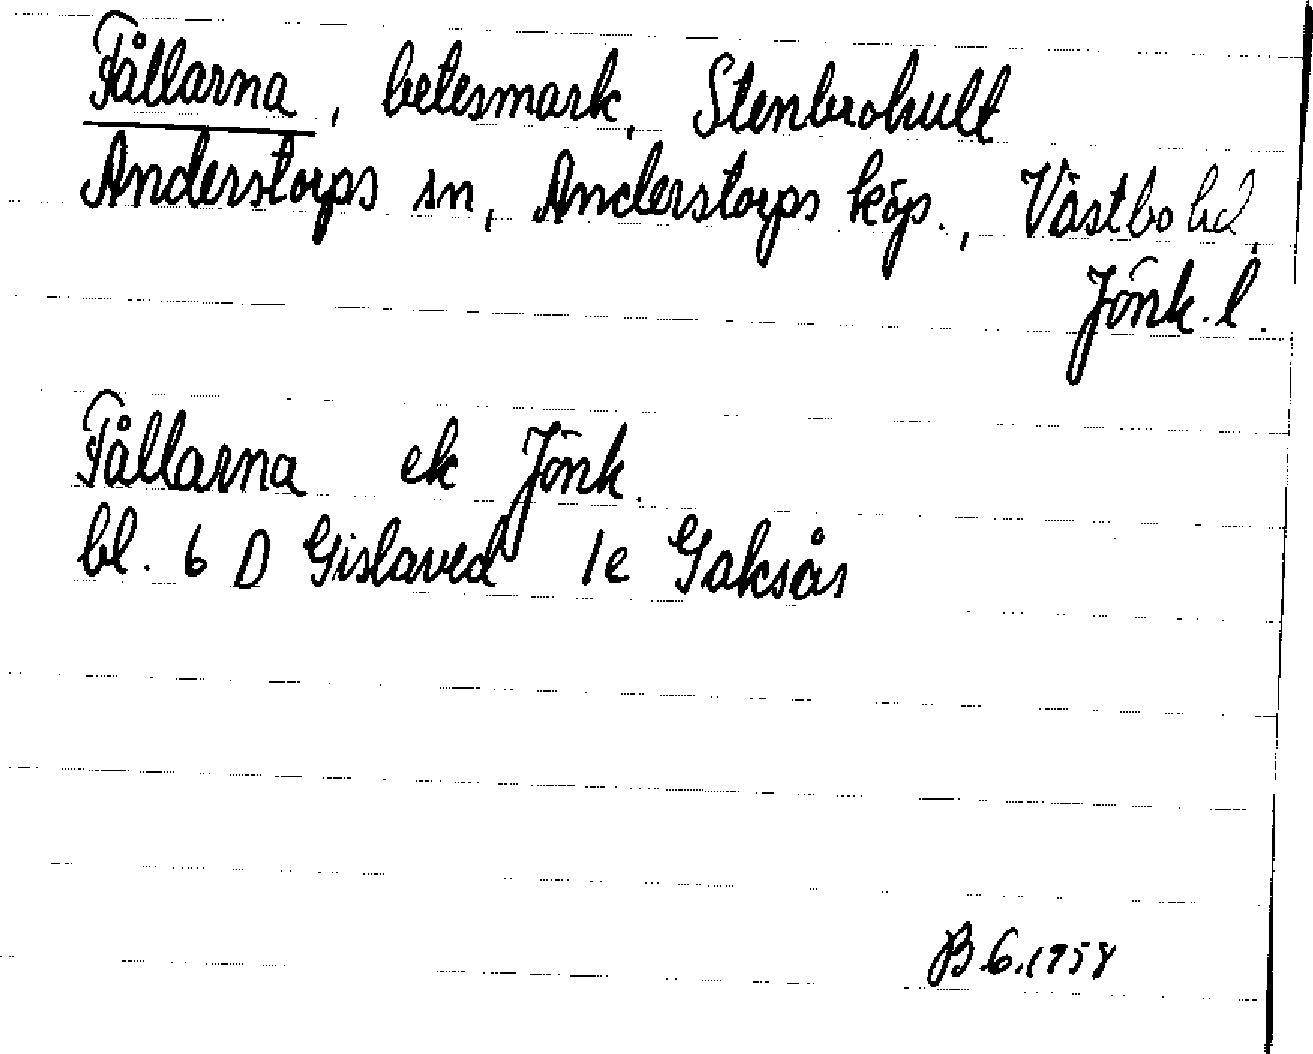 Fållarna, betesmark, Stenbrohult
Anderstorps sn, Anderstorps köp., Västbo hd,
Jönk. l.
Fållarna ek Jönk.
bl. 6 D Gislaved 1e Gaksås
B G. 1958